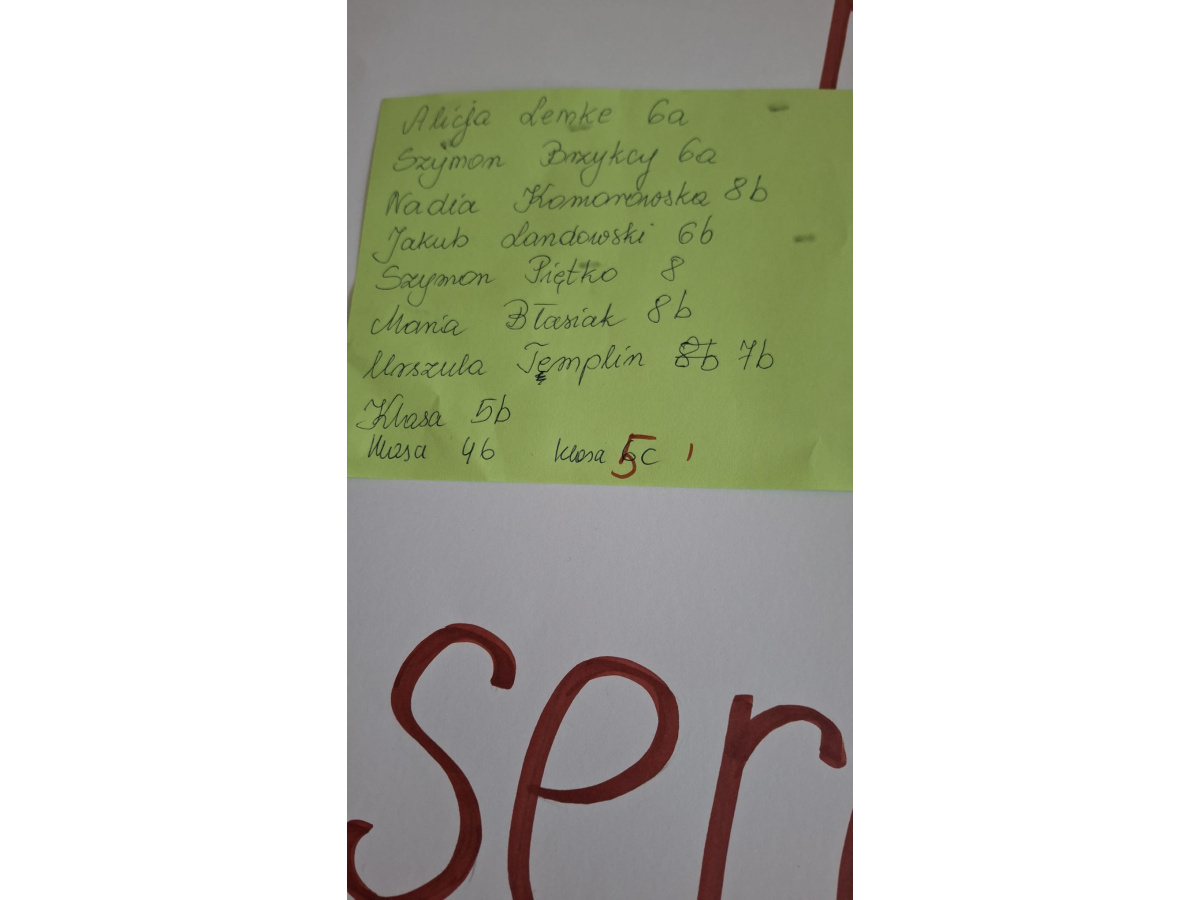 Alicja Lemke 6a
Szymon Brzykcy 6a
Nadia Komorowska 8b
Jakub Landowski 6b
Szymon Piętko 8
Maria Błasiak 8b
Urszula Templin 8b 7b
Klasa 5b
klasa 4b klasa 5c
ser